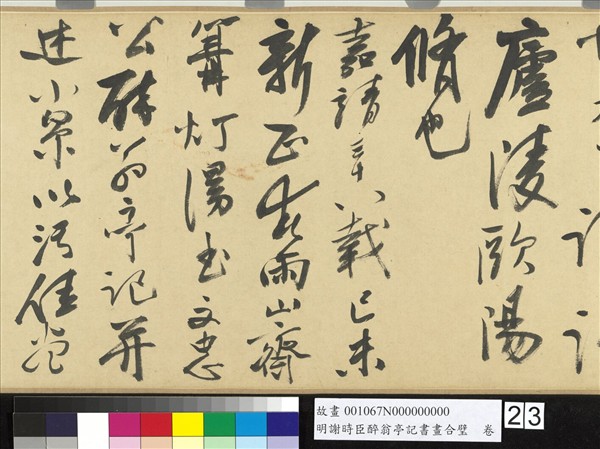 廬陵歐陽
脩也
嘉靖三十八載己未
新正春雨山齋
篝灯漫書文忠
公醉翁亭記并
述小景以污佳卷
故畫 001067N000000000
明謝時臣醉翁亭記書畫合璧 卷
23